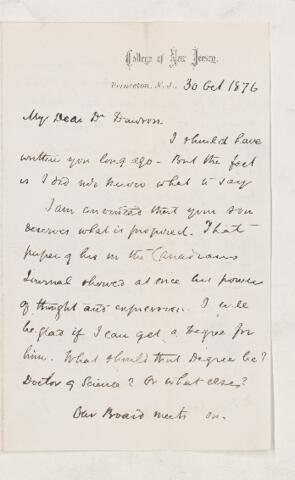 College of New Jersey.
Princeton, N. J., 30 Oct 1876
My Dear Dr Dawson
I should have
written you long ago - But the fact
is I did not know what to say
I am convinced that your son
deserves what is proposed. That
paper of his in the Canadian
Journal showed at once his power
of thought and expression. I will
be glad if I can get a Degree for
him. What should that Degree be?
Doctor of Science? Or what else?
Our Board meets on